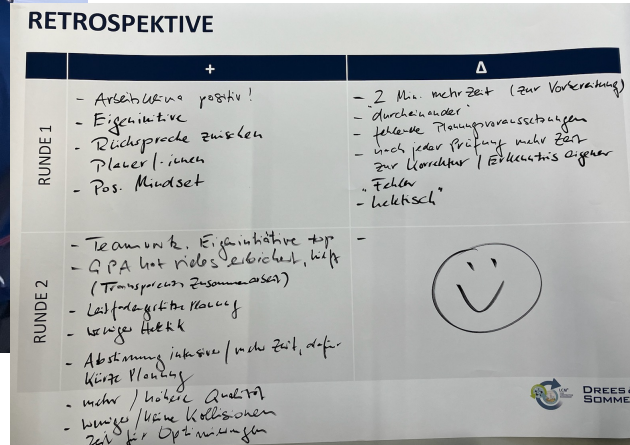 RETROSPEKTIVE
+
Δ
RUNDE 1
- Arbeitsklima positiv!
- Eigeninitive
- Rücksprache zwischen
Planer/-innen
- Pos. Mindset
- 2 Min. mehr Zeit (zur Vorbereitung)
- "durcheinander"
- fehlende Planungsvoraussetzungen
- nach jeder Prüfung mehr Zeit
zur Korrektur / Erkenntnis eigener
Fehler
- "hektisch"
RUNDE 2
- Teamwork, Eigeninitiative top
- GPA hat vieles erleichert,
(Transparenz Zusammenarbeit)
- Leitfadengestützte Planung
- weniger Hektik
- Abstimmung intensive / mehr Zeit, dafür
kürze Planung
- mehr / höhere Qualität
- weniger / keine Kollisionen
Zeit für Optimierungen
-
DREES &
SOMME